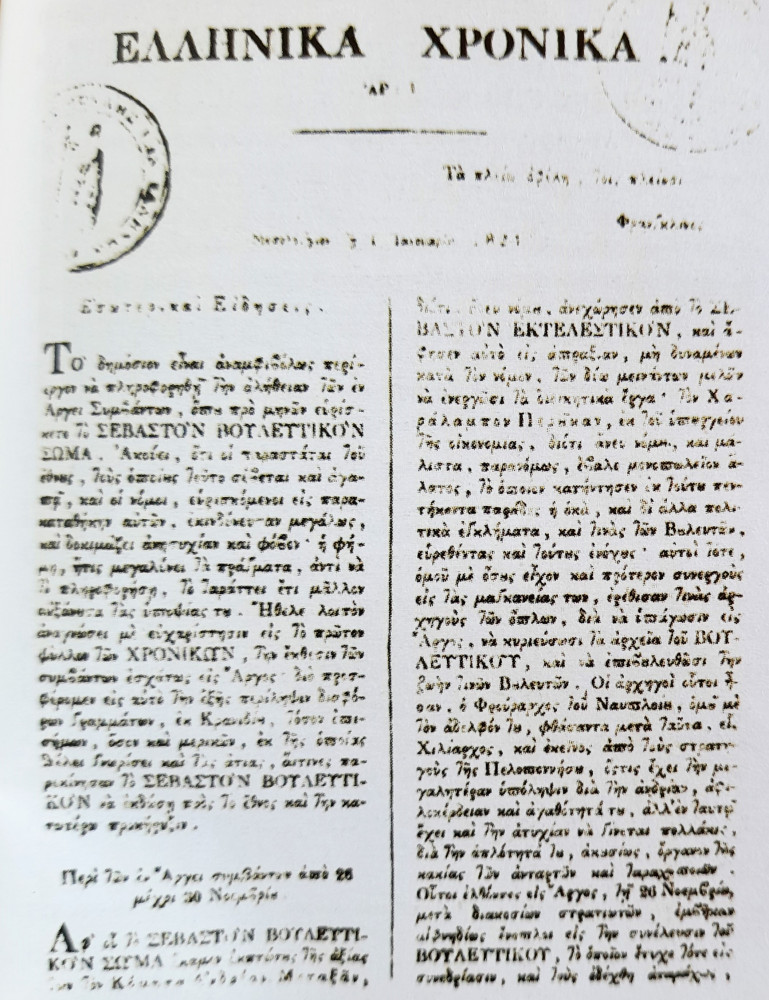 ΕΛΛΗΝΙΚΑ ΧΡΟΝΙΚΑ
Τὰ πλείω ὀφέλη, τοῖς πλείοσι
Φραγκλῖνος
Μεσολόγγιον τῇ 1 Ἰανουαρίου 1824
Εσωτερικαὶ Εἰδήσεις.
Τὸ δημόσιον εἶναι ἀναμφιβόλως περί-
εργον νὰ πληροφορηθῇ τὴν ἀλήθειαν τῶν ἐν
Ἄργει Συμβάντων, ὅπου πρὸ μηνῶν εὑρίσ-
κετο τὸ ΣΕΒΑΣΤΟ'Ν ΒΟΥΛΕΥΤΙΚΟ'Ν
ΣΩΜΑ. Ἀκούει, ὅτι οἱ παραστάται τοῦ
ἔθνους, τοὺς ὁποίους τοῦτο σέβεται καὶ ἀγα-
πᾷ, καὶ οἱ νόμοι, εὑρισκόμενοι εἰς παρα-
καταθήκην αὐτῶν, ἐκινδύνευσαν μεγάλως,
καὶ δοκιμάζει ἀνησυχίαν καὶ φόβον· ἡ φή-
μη, ἥτις μεγαλύνει τὰ πράγματα, ἀντὶ νὰ
τὸ πληροφορήσῃ, τὸ ταράττει ἔτι μᾶλλον
αὐξάνουσα τὰς ὑποψίας του. Ἤθελε λοιπὸν
ἀναγνώσει μὲ εὐχαρίστησιν εἰς τὸ πρῶτον
φύλλον τῶν ΧΡΟΝΙΚΩΝ, τὴν ἔκθεσιν τῶν
συμβάντων ἐσχάτως εἰς Ἄργος· διὸ προσ-
φέρομεν εἰς αὐτὸ τὴν ἑξῆς περίληψιν διαφό-
ρων γραμμάτων, ἐκ Κρανιδίου, τόσον ἐπι-
σήμων, ὅσον καὶ μερικῶν, ἐκ τῆς ὁποίας
θέλει γνωρίσει καὶ τὰς αἰτίας, αἵτινες πα-
ρεκίνησαν τὸ ΣΕΒΑΣΤΟ'Ν ΒΟΥΛΕΥΤΙ-
ΚΟ'Ν νὰ ἐκδώσῃ πρὸς τὸ ἔθνος καὶ τὴν κα-
τωτέρω προκήρυξιν.
Περὶ τῶν ἐν Ἄργει συμβάντων ἀπὸ 26
μέχρι 30 Νοεμβρίου.
Ἀφ' οὗ τὸ ΣΕΒΑΣΤΟ'Ν ΒΟΥΛΕΥΤΙ-
ΚΟ'Ν ΣΩΜΑ ἔκαμεν ἐκπτώτους τῆς ἀξίας
των τὸν Κόμητα Ἀνδρέαν Μεταξᾶν,
διότι ἄνευ νόμου, ἀνεχώρησεν ἀπὸ τὸ ΣΕ-
ΒΑΣΤΟ'Ν ΕΚΤΕΛΕΣΤΙΚΟ'Ν, καὶ ἄ-
φησεν αὐτὸ εἰς ἀπραξίαν, μὴ δυναμένων
κατὰ τὸν νόμον, τῶν δύω μεινάντων μελῶν
νὰ ἐνεργῶσι τὰ διοικητικὰ ἔργα· τὸν Χα-
ράλαμπον Περούκαν, ἐκ τοῦ ὑπουργείου
τῆς οἰκονομίας, διότι ἄνευ νόμου, καὶ μά-
λιστα, παρανόμως, ἔβαλε μονοπωλεῖον ἅ-
λατος, τὸ ὁποῖον κατήντησεν ἐκ τούτου πεν-
τήκοντα παράδες ἡ ὀκὰ, καὶ δι' ἄλλα πολι-
τικὰ ἐγκλήματα, καὶ τινὰς τῶν Βουλευτῶν,
εὑρεθέντας καὶ τούτους ἐνόχους· αὐτοὶ τότε,
ὁμοῦ μὲ ὅσους εἶχον καὶ πρότερον συνεργοὺς
εἰς τὰς μαγγανείας των, ἠρέθισαν τινὰς ἀρ-
χηγοὺς τῶν ὅπλων, διὰ νὰ ὑπάγωσιν εἰς
Ἄργος, νὰ κυριεύσωσι τὰ ἀρχεῖα τοῦ ΒΟΥ-
ΛΕΥΤΙΚΟΥ, καὶ νὰ ἐπιβουλευθῶσι τὴν
ζωὴν τινῶν Βουλευτῶν. Οἱ ἀρχηγοὶ οὗτοι ἦ-
σαν, ὁ Φρούραρχος τοῦ Ναυπλίου, ὁμοῦ μὲ
τὸν ἀδελφόν του, φθάσαντα μετὰ ταῦτα, εἷς
Χιλίαρχος, καὶ ἐκεῖνος ἀπὸ τοὺς στρατη-
γοὺς τῆς Πελοποννήσου, ὅστις ἔχει τὴν με-
γαλητέραν ὑπόληψιν διὰ τὴν ἀνδρίαν, ἀφι-
λοκέρδειαν καὶ ἀγαθότητά του, ἀλλ' ἐν ταυτῷ
ἔχει καὶ τὴν ἀτυχίαν νὰ γίνεται πολλάκις,
διὰ τὴν ἁπλότητά του, ἀκουσίως, ὄργανον τῆς
κακίας τῶν ἀνταρτῶν καὶ ταραχοποιῶν.
Οὗτοι ἐλθόντες εἰς Ἄργος, τῇ 26 Νοεμβρίου,
μετὰ διακοσίων στρατιωτῶν, ἐμβῆκαν
αἰφνηδίως ἔνοπλοι εἰς τὴν συνέλευσιν τοῦ
ΒΟΥΛΕΥΤΙΚΟΥ, τὸ ὁποῖον ἔτυχε τότε εἰς
συνεδρίασιν, καὶ τοὺς ἐδέχθη ἀταράχως,